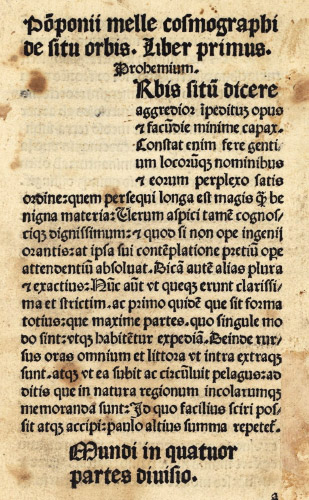 Põponii melle cosmographi
de situ orbis. Liber primus.
Prohemium.
Rbis sitũ dicere
aggredior ĩpeditũ opus
⁊ facũdie minime capax.
Constat enim fere genti-
um locorũqꝫ nominibus
⁊ eorum perplexo satis
ordine: quem persequi longa est magis ꝗ̃ be
nigna materia: Uerum aspici tamẽ cognos-
ciqꝫ dignissimum: ⁊ quod si non ope ingenij
orantis: at ipsa sui contẽplatione pretiũ ope
attendentiũ absoluat. Dicã autẽ alias plura
⁊ exactius: Nũc aũt vt queqꝫ erunt clarissi-
ma et strictim. ac primo quidẽ que sit forma
totius: que maxime partes. quo singule mo
do sint: vtqꝫ habitẽtur expediã. Deinde rur-
sus oras omnium et littora vt intra extraqꝫ
sunt. atqꝫ vt ea subit ac circũluit pelagus: ad
ditis que in natura regionum incolarumqꝫ
memoranda sunt: Id quo facilius sciri pos-
sit atqꝫ accipi: paulo altius summa repetet᷑.
Mundi in quatuor
partes diuisio.
a